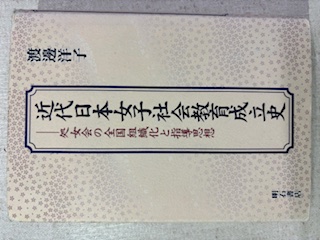 渡邊洋子
近代日本女子社会教育成立史
──処女会の全国組織化と指導思想
明石書店